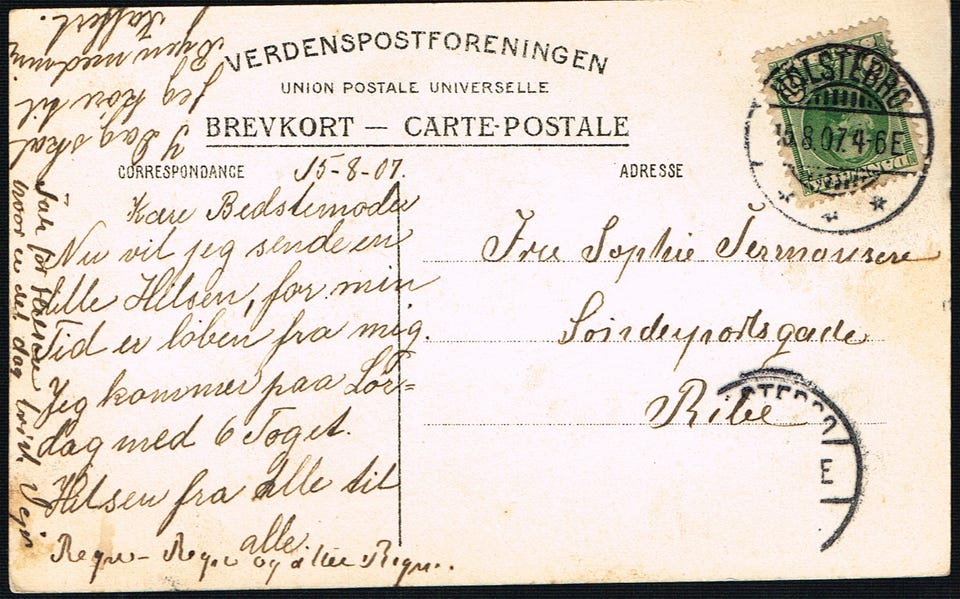 VERDENSPOSTFORENINGEN
UNION POSTALE UNIVERSELLE
BREVKORT — CARTE-POSTALE
CORRESPONDANCE
ADRESSE
15-8-07.
Kære Bedstemoder
Nu vil jeg sende en
lille Hilsen, for min
Tid er løben fra mig.
Jeg kommer paa Lør=
dag med 6 Toget.
Hilsen fra alle til
alle
Regn- Regn og atter Regn..
I Dag skal
jeg køre til
Byen med min
hvor er det dog trist Vejr
Fru Sophie Termansen
Sønderportsgade
Ribe
HOLSTEBRO
15.8.07.4-6E
DANMARK
STEBRO
E